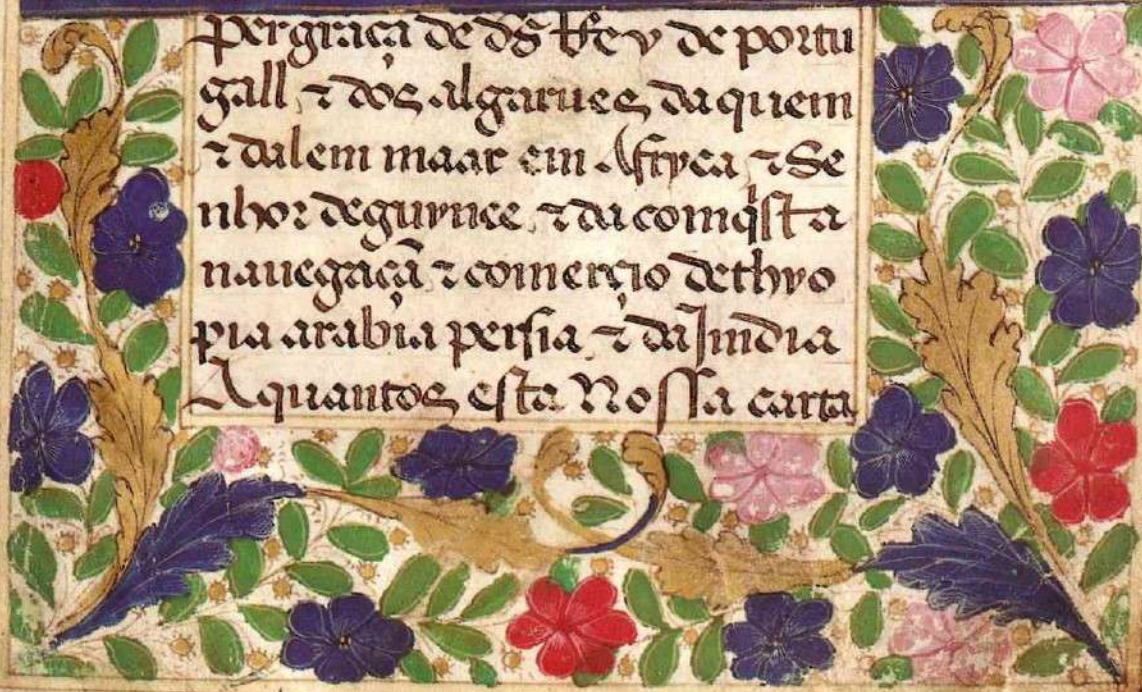 per graça de ds̃ Rey de portu
gall ⁊ dos algarues daquem
⁊ dalem maar em Affryca ⁊ Se
nhor deguynee ⁊ da comq̃sta
nauegaçã ⁊ comerçio dethyo
pia arabia persia ⁊ da Jndia
Aquantos esta Nossa carta